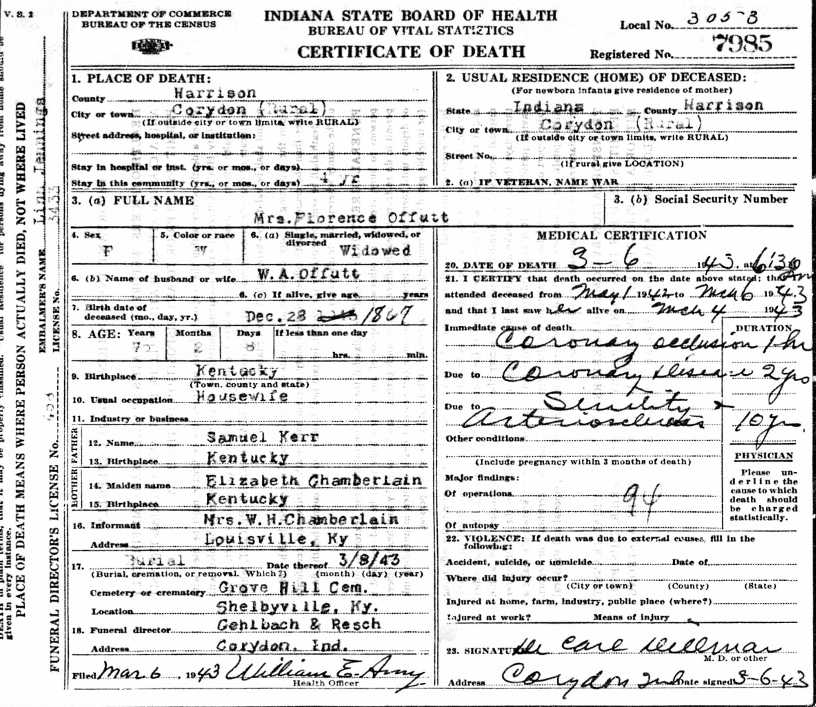 V. S. 2
DEPARTMENT OF COMMERCE
BUREAU OF THE CENSUS
INDIANA STATE BOARD OF HEALTH
BUREAU OF VITAL STATISTICS
CERTIFICATE OF DEATH
Local No. 305-B
Registered No. 7985
1. PLACE OF DEATH:
County Harrison
City or town Corydon (Rural)
(If outside city or town limits, write RURAL)
Street address, hospital, or institution:
Stay in hospital or inst. (yrs. or mos., or days)
Stay in this community (yrs., or mos., or days) 4 yr
2. USUAL RESIDENCE (HOME) OF DECEASED:
(For newborn infants give residence of mother)
State Indiana County Harrison
City or town Corydon (Rural)
(If outside city or town limits, write RURAL)
Street No.
(If rural give LOCATION)
2. (a) IF VETERAN, NAME WAR
3. (a) FULL NAME
Mrs. Florence Offutt
3. (b) Social Security Number
4. Sex F
5. Color or race W
6. (a) Single, married, widowed, or divorced Widowed
6. (b) Name of husband or wife W.A.Offutt
6. (c) If alive, give age years
7. Birth date of
deceased (mo., day, yr.) Dec. 28 1867
8. AGE: Years Months Days If less than one day
75 2 8 hrs. min.
9. Birthplace Kentucky
(Town, county and state)
10. Usual occupation Housewife
11. Industry or business
FATHER
12. Name Samuel Kerr
13. Birthplace Kentucky
MOTHER
14. Maiden name Elizabeth Chamberlain
15. Birthplace Kentucky
16. Informant Mrs.W.H.Chamberlain
Address Louisville, Ky
17. Burial Date thereof 3/8/43
(Burial, cremation, or removal. Which?) (month) (day) (year)
Cemetery or crematory Grove Hill Cem.
Location Shelbyville, Ky.
18. Funeral director Gehlbach & Resch
Address Corydon, Ind.
Filed Mar 6 1943 William E. Amy
Health Officer
MEDICAL CERTIFICATION
20. DATE OF DEATH 3-6 1943, at 6:30 Am
21. I CERTIFY that death occurred on the date above stated; that I
attended deceased from May 1 1942 to Mch 6 1943
and that I last saw her alive on Mch 4 1943
Immediate cause of death DURATION
Coronary occlusion 1 hr
Due to Coronary disease 2 yrs
Due to Senility &
Arteriosclerosis 10 yrs.
Other conditions
(Include pregnancy within 3 months of death)
Major findings:
Of operations 94
Of autopsy
PHYSICIAN
Please un-
derline the
cause to which
death should
be charged
statistically.
22. VIOLENCE: If death was due to external causes, fill in the
following:
Accident, suicide, or homicide Date of
Where did injury occur?
(City or town) (County) (State)
Injured at home, farm, industry, public place (where?)
Injured at work? Means of injury
23. SIGNATURE Dr Carl Dillman
M. D. or other
Address Corydon Ind Date signed 3-6-43
PLACE OF DEATH MEANS WHERE PERSON ACTUALLY DIED, NOT WHERE LIVED
given in every instance.
EMBALMER'S NAME Jennings
LICENSE No. 3433
FUNERAL DIRECTOR'S LICENSE No.